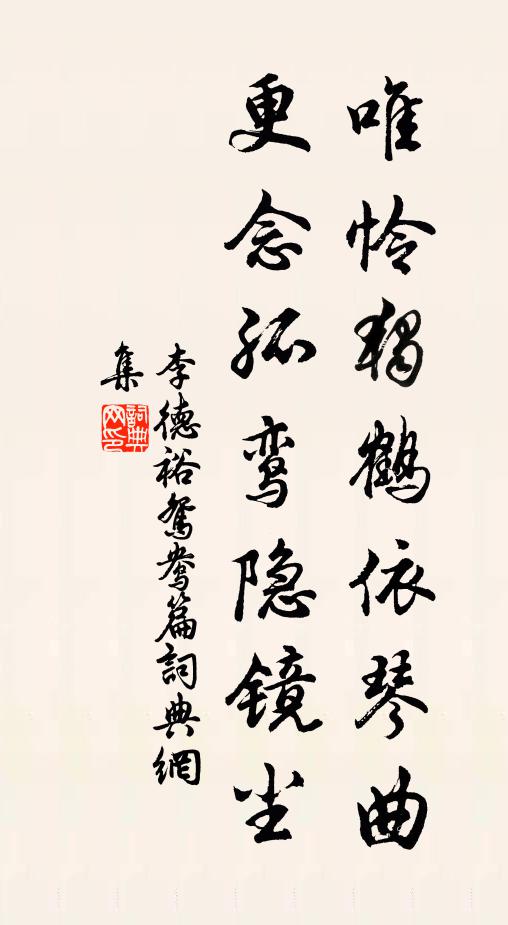 唯怜独鹤依琴曲
更念孤鸾隐镜尘
李德裕鴛鴦篇詞典網
集
詞典
网印